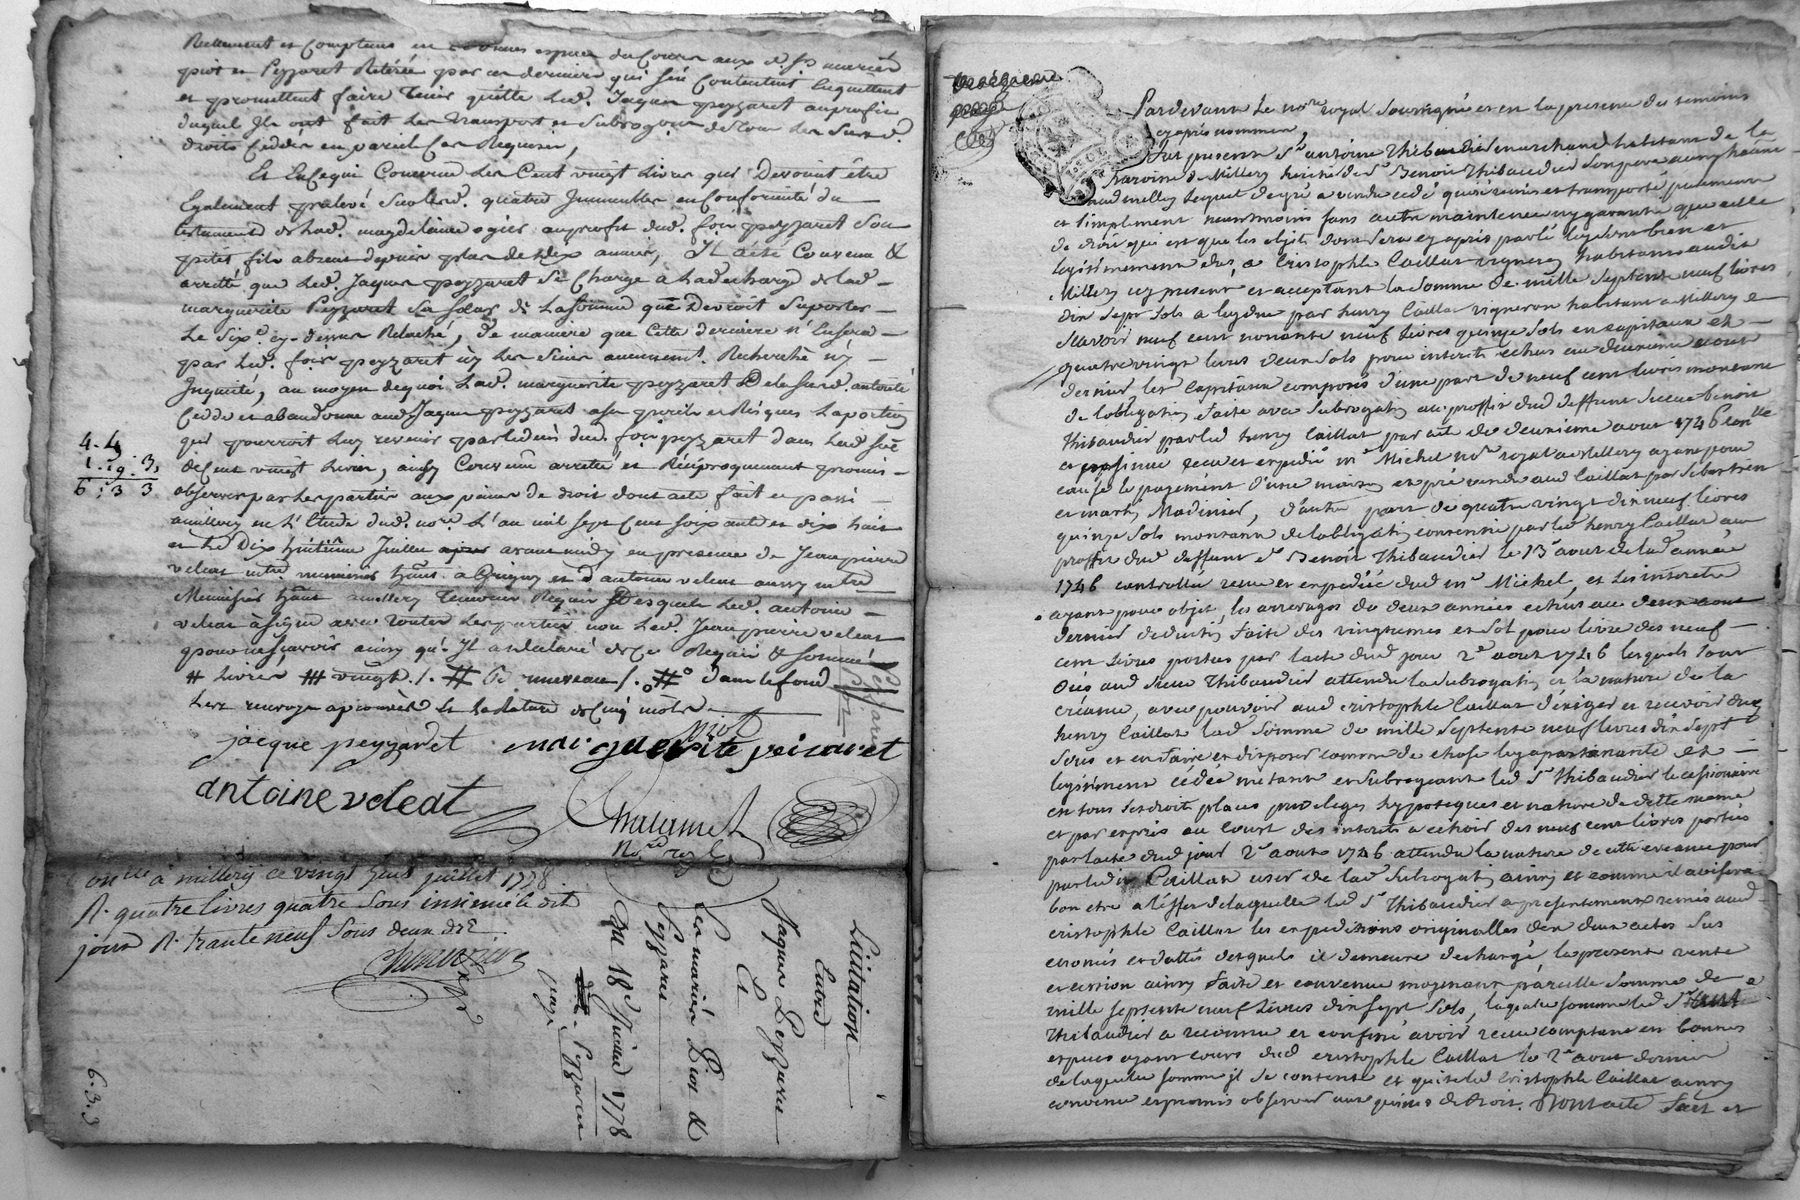 Reellement et Comptant en
piot et Peyzaret Retirée par ces derniers qui s'en Contentent l'acquittent
et promettent faire Tenir quitte led. Jaques peyzaret au profit
duquel Ils ont fait les transport et Subrogation de tous les Susd.
droits Ceddés en pareil Cas Requis,
Et En Ce qui Concerne Les Cent vingt Livres qui Devoint être
Egalement prelevé Sur lesd. quatre Immeubles en Conformité du
testament de lad. magdelaine ogier au profit dud. foix peyzaret Son
petit fils absent depuis plus de dix années, Il a été Convenu &
arretté que led. Jaques peyzaret Se Charge à la decharge de lad.
marguerite Peyzaret Sa Sœur de la Somme que Devroit Suporter
Le Six.e cy-dessus Relaché, de maniere que Cette derniere n'En sera
par led. foix peyzaret ny les Siens aucunement Recherché n'y
Inquieté, au moyen de quoi Lad. marguerite peyzaret De la Susd. autorité
Cedde et abandonne aud. Jaques peyzaret a ses perils et Risques La portion
qui pourroit Luy revenir par le deces dud. foix peyzaret dans lad. Sôe
de Cent vingt Livres, ainsy Convenu arretté et Reciproquement promis
observer par Les parties aux peines de droit dont acte fait et passé
a millery en L'Etude dud. no.re L'an mil Sept Cent Soixante et dix huit
et Le Dix huitième Juillet avant midy en presence de Jean pierre
veleat
Menuisier a millery Temoins Requis Desquels led. antoine
veleat a Signé avec toutes Les parties non Led. Jean pierre veleat
pour ne Sçavoir ainsy qu'Il a declaré de Ce Requis & Sommé
# Livres ## vingt ./. # ./. # dans le fond
4. 4
1. 19. 3
6. 3 3
Peyzaret
piot
jacque peyzaret marguerite peizaret
antoine veleat
Chalamel
No.re royal
Con.lle à millery ce vingt huit juillet 1778
R. quatre livres quatre Sous insinué le dit
jour R. trante neuf Sous deux d.
Licitation
Entre
Jaques Peyzaret
Et
Les mariés Piot &
Peyzaret
Du 18e Juillet 1778
6. 3. 3
Pardevant Le no.re royal Soussigné et en la presence des temoins
cy apres nommés,
Fut present S.r antoine Thibaudier marchand habitant de la
Paroisse de Millery heritier de S.r Benoit Thibaudier Son pere
lequel de gré a vendu cedé quitté remis et transporté purement
et simplement neantmoins sans autre maintenue ny garantie que celle
de droit qui est que les objets dont Sera cy apres parlé luy Sont bien et
legitimement dus, a Cristophle Caillat vigneron habitant audit
Millery icy present et acceptant la Somme de mille Septente neuf livres
dix Sept Sols a luy due par henry Caillat vigneron habitant a Millery
Scavoir neuf cent nonante neuf livres quinze Sols en capitaux et
quatre vingt livres deux Sols pour interets echus au deuxieme aout
dernier les Capitaux composés d'une part de neuf cent livres montant
de l'obligation faite avec Subrogation au proffit dud. deffunt Sieur benoit
Thibaudier par led. henry Caillat par acte du deuxieme aout 1746 Con.lle
et insinué receu et expedié m.e Michel no.re royal a Millery ayant pour
cause le payement d'une maison et pré vendu aud. Caillat par Sebastien
et martin Madinier, d'autre part de quatre vingt dix neuf livres
quinze Sols montant de l'obligation consentie par led. henry Caillat au
proffit dud. deffunt S.r Benoit Thibaudier le 13 aout de lad. année
1746 controllée receu et expediée dud. m.e Michel, et Les interets
ayant pour objet, les arrerages de deux années echus au deux aout
dernier deduction faite des vingtiemes et Sol pour livre des neuf
cent livres portées par l'acte dud. jour 2e aout 1746 lesquels Sont
dus aud. Sieur Thibaudier attendu la Subrogation et la nature de la
créance, avec pouvoir aud. cristophle Caillat d'exiger et recevoir dud.
henry Caillat lad. Somme de mille Septente neuf livres dix Sept
Sols et en faire et disposer comme de chose luy apartenante et
legitimement cedée mettant et Subrogeant led. S.r Thibaudier le cessionnaire
en tous Ses droits places privileges hypoteques et nature de dette meme
et par exprès au Court des interets a echoir des neuf cent livres portées
par l'acte dud. jour 2e aout 1746 attendu la nature de cette creance pour
par led. Caillat user de lad. Subrogation ainsy et comme il avisera
bon etre a l'effet de laquelle led. S.r Thibaudier a presentement remis aud.
cristophle Caillat les expeditions originalles des deux actes Sus
enoncés et dattés desquels il demeure dechargé, la presente vente
et cession ainsy faite et convenue moyenant pareille Somme de
mille septente neuf Livres dix sept Sols, laquelle somme led. S.r
Thibaudier a reconnu et confessé avoir receu comptant en bonnes
especes ayant cours dud. cristophle Caillat le 2e aout dernier
de laquelle somme il Se contente et quitte led. Cristophle Caillat ainsy
convenu et promis observer aux peines de droit. Dont acte fait et